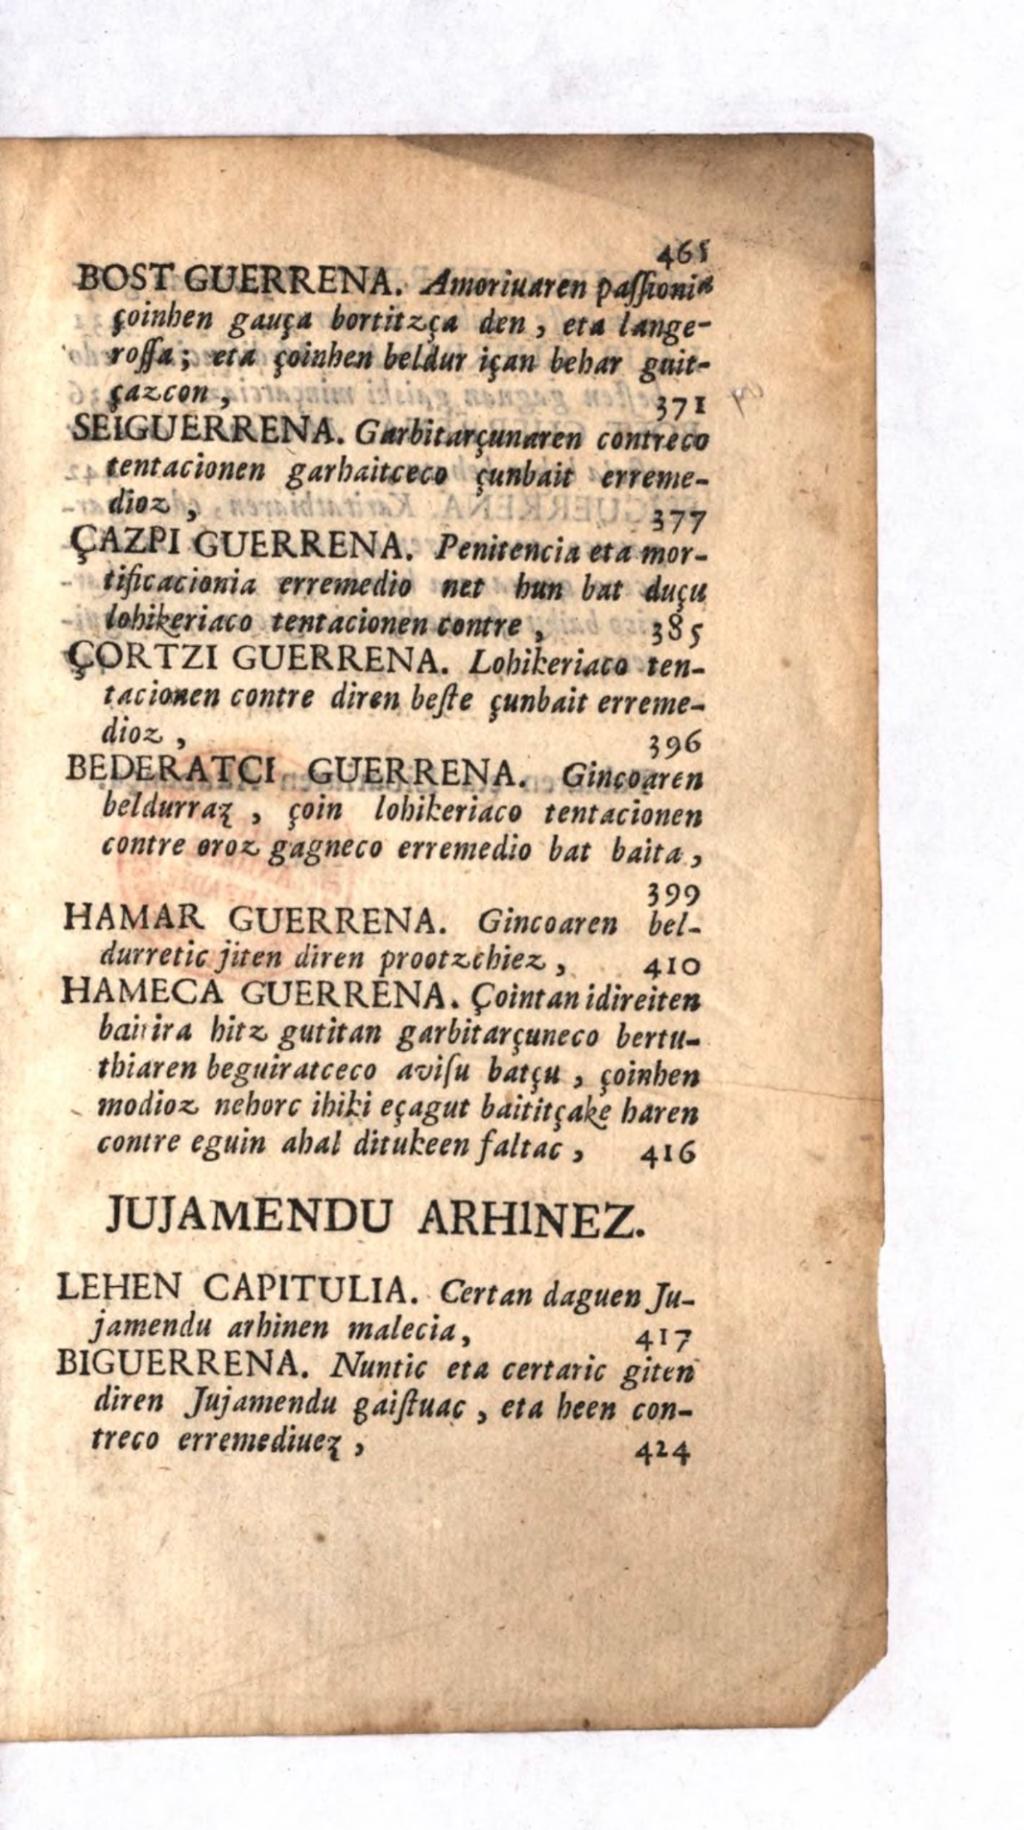 465
BOST GUERRENA. Amoriuaren paſſionia
çoinhen gauça bortitzça den, eta lange-
roſſa; eta çoinhen beldur içan behar guit-
çazcon, 371
SEIGUERRENA. Garbitarçunaren contreco
tentacionen garhaitceco çunbait erreme-
dioz, 377
ÇAZPI GUERRENA. Penitencia eta mor-
tificacionia erremedio net hun bat duçu
lohikeriaco tentacionen contre, 385
ÇORTZI GUERRENA. Lohikeriaco ten-
tacionen contre diren beſte çunbait erreme-
dioz, 396
BEDERATCI GUERRENA. Gincoaren
beldurraz, çoin lohikeriaco tentacionen
contre oroz gagneco erremedio bat baita,
399
HAMAR GUERRENA. Gincoaren bel-
durretic jiten diren prootzchiez, 410
HAMECA GUERRENA. Çointan idireiten
baitira hitz gutitan garbitarçuneco bertu-
thiaren beguiratceco aviſu batçu, çoinhen
modioz nehorc ihiki eçagut baititçake haren
contre eguin ahal ditukeen faltac, 416
JUJAMENDU ARHINEZ.
LEHEN CAPITULIA. Certan daguen Ju-
jamendu arhinen malecia, 417
BIGUERRENA. Nuntic eta certaric giten
diren Jujamendu gaiſtuac, eta heen con-
treco erremediuez, 424